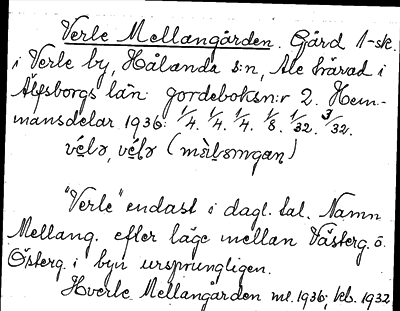 Verle Mellangården. Gård 1-sk.
i Verle by, Hålanda s:n, Ale härad i
Älfsborgs län: jordeboksn:r 2. Hem-
mansdelar 1936: 1/4. 1/4. 1/4. 1/8. 1/32. 3/32.
"Verle" endast i dagl. tal. Namn
Mellang. efter läge mellan Västerg. o.
Österg. i byn ursprungligen.
Hverle Mellangården ml. 1936; kb. 1932